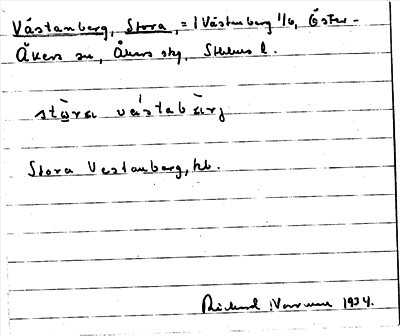 Västanberg, Stora, = 1 Västanberg 1/6, Öster-
Åkers sn, Åkers sky, Sthlms l.
stòra vä́stabàrj
Stora Vestanberg, kb.
Rickard 1934.